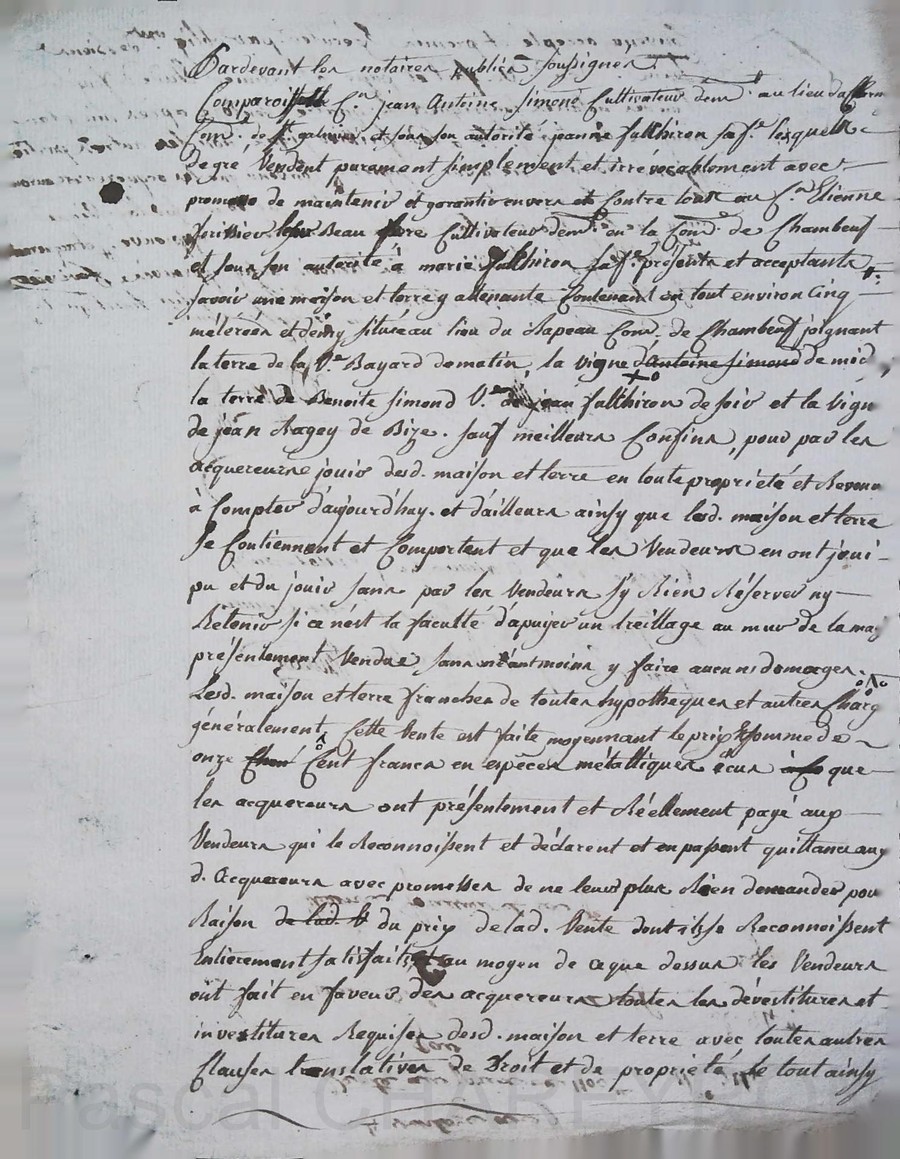 Pardevant les notaires publics soussignes
Comparoissent C.en jean Antoine simond Cultivateur dem.t au lieu
Com.e de St galmier et sous son autorité jeanne fulchiron sa f.e lesquels
de gré Vendent purement simplement et irrévocablement avec
promesse de maintenir et garantir envers et Contre tous au C.en Etienne
Beau frere Cultivateur dem.t en la Com.e de Chambeuf
et sous son autorité à marie fulchiron sa f.e présents et acceptants
savoir une maison et terre y attenante Contenant en tout environ Cinq
méterées et demy située au lieu du Com.e de Chambeuf joignant
la terre de la V.e Bayard de matin, la vigne d'Antoine simond de midi,
la terre de Benoite simond V.e de jean fulchiron de soir et la vigne
de jean de Bize. sauf meilleurs Confins, pour par les
acquereurs jouir desd. maison et terre en toute propriété et Revenu
à Compter d'aujourd'huy. et d'ailleurs ainsy que lesd. maison et terre
se Contiennent et Comportent et que les Vendeurs en ont joui
pu et du jouir sans par les Vendeurs s'y Rien Réserver ny
Retenir si ce n'est la faculté d'apuyer un treillage au mur de la mais
présentement Vendue sans néantmoins y faire aucuns domages.
Lesd. maison et terre franches de toutes hypotheques et autres Charg
généralement, Cette Vente est faite moyennant le prix & somme de
onze Cent francs en espèces métalliques écus que
les acquereurs ont présentement et Réellement payé aux
Vendeurs qui le Reconnoissent et déclarent et en passent quittance aux
d. Acquereurs avec promesses de ne leur plus Rien demander pour
Raison de lad. V du prix de lad. Vente dont ils se Reconnoissent
Entierement satisfaits et au moyen de ce que dessus les Vendeurs
ont fait en faveur des acquereurs toutes les dévestitures et
investitures Requises desd. maison et terre avec toutes autres
Clauses translatives de Droit et de propriété Le tout ainsy
Pascal CHAREYRON